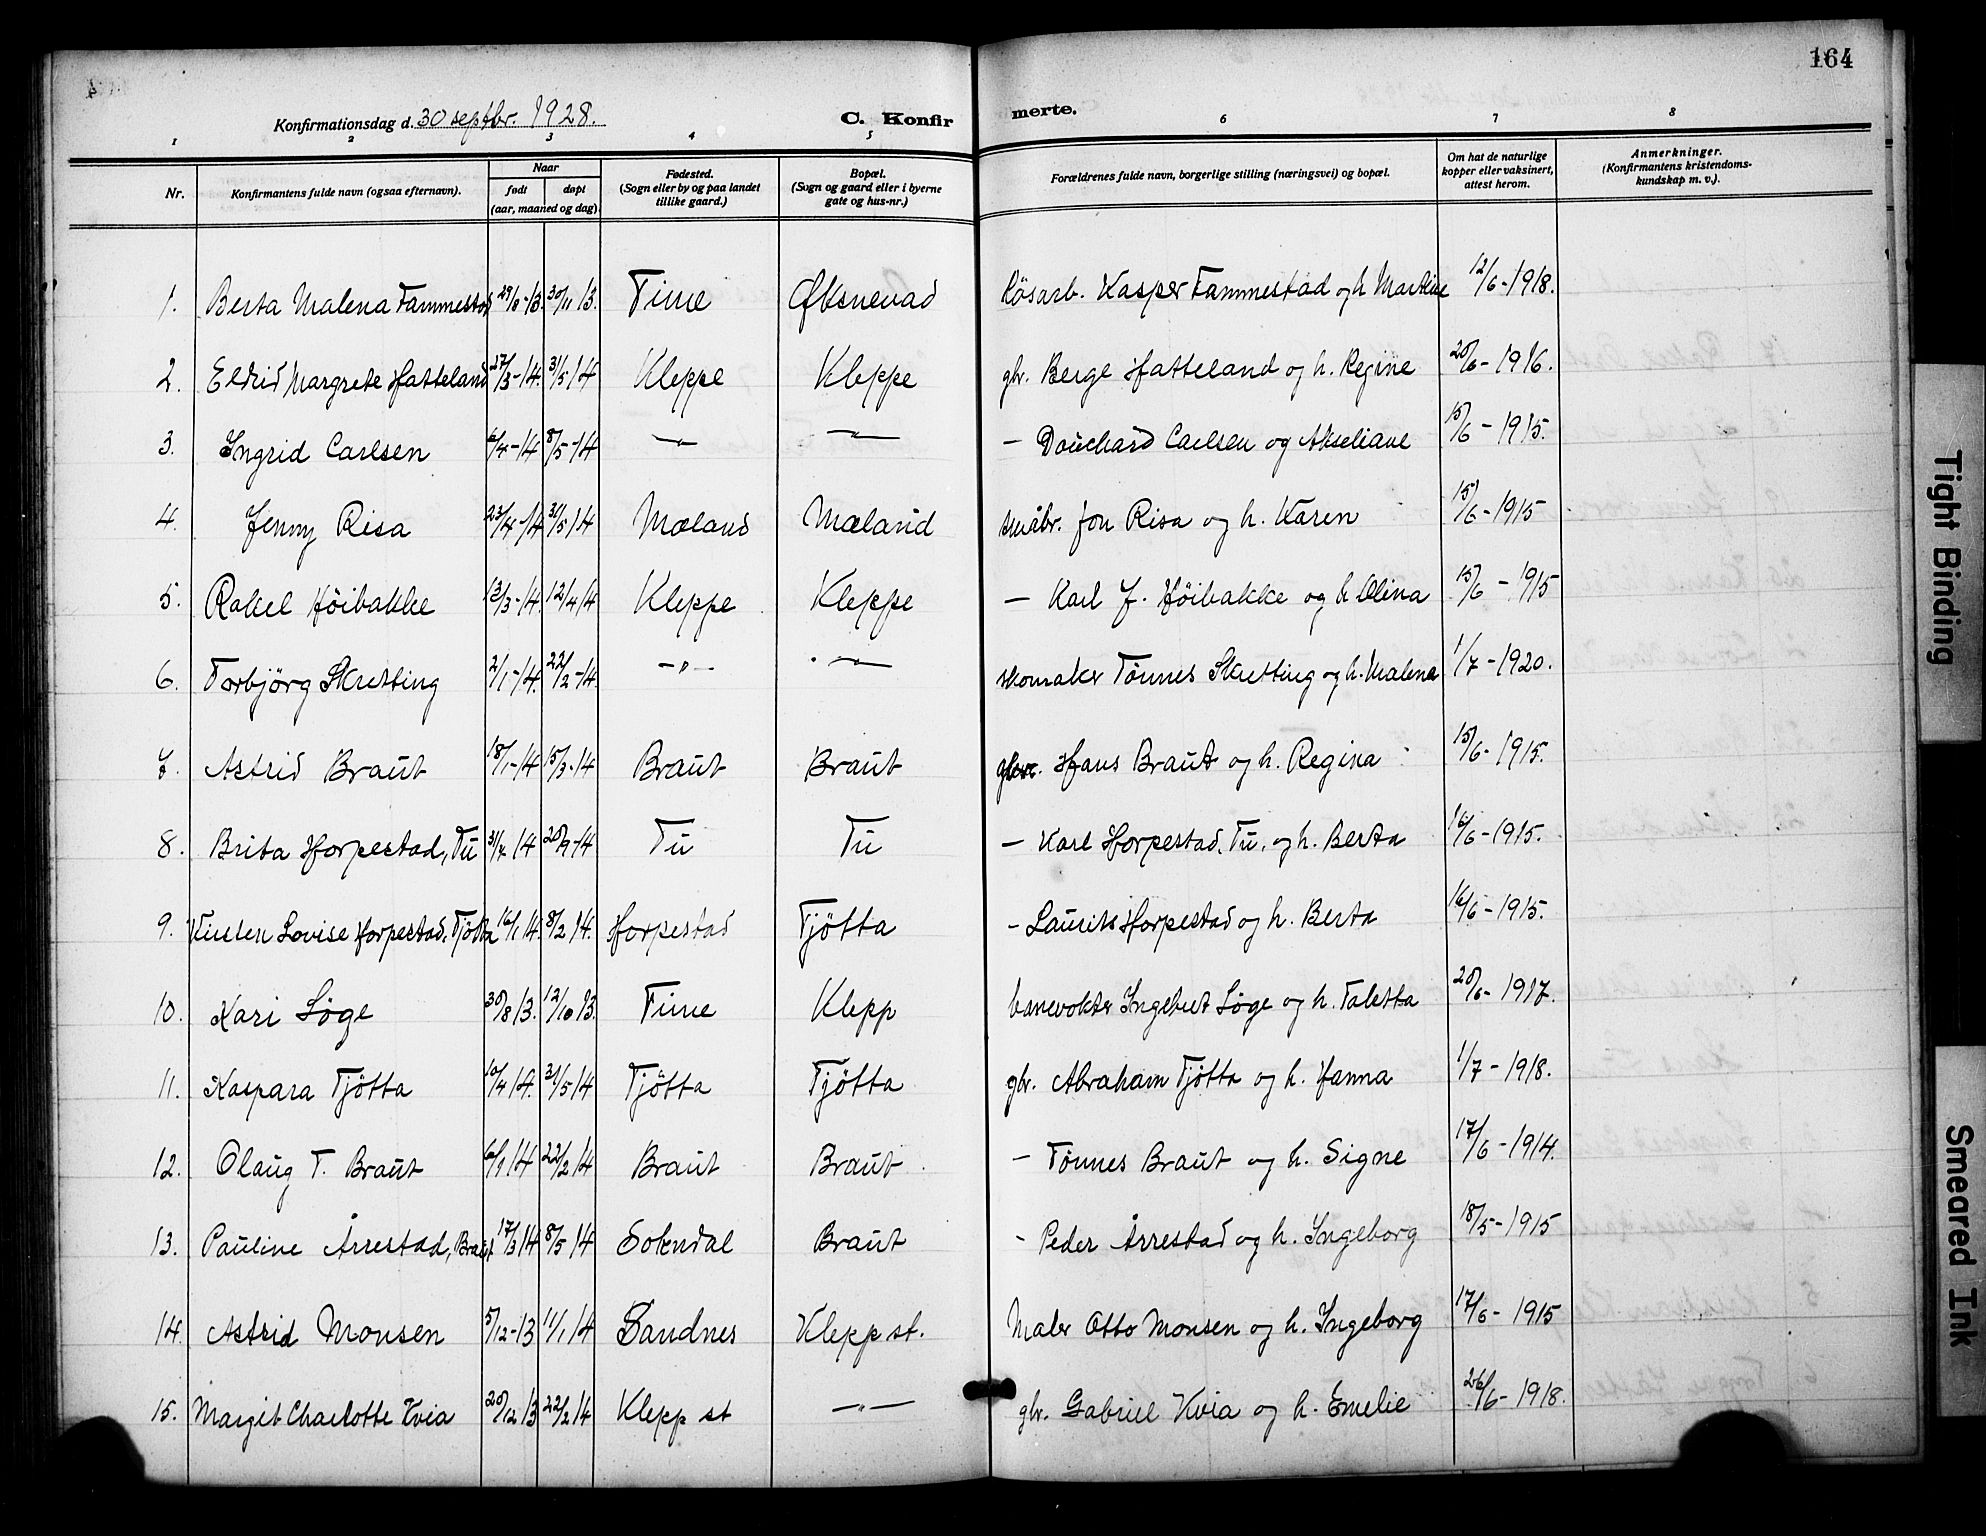 164
Konfirmationsdag d. 30 septbr. 1928.
C. Konfir
merte.
1 2 3 4 5 6 7 8
Nr. Konfirmantens fulde navn (ogsaa efternavn). Naar født døpt (aar, maaned og dag). Fødested. (Sogn eller by og paa landet tillike gaard.) Bopæl. (Sogn og gaard eller i byerne gate og hus-nr.) Forældrenes fulde navn, borgerlige stilling (næringsvei) og bopæl. Om hat de naturlige kopper eller vaksinert, attest herom. Anmerkninger. (Konfirmantens kristendoms- kundskap m. v.).
1. Berta Malena Tammestad 30/11 13. Time Øksnevad Kasper Tammestad og h. Martine 12/6-1918.
2. Eldrid Margrete Hatteland 27/3-14. 31/5 14 Kleppe Kleppe gbr. Berge Hatteland og h. Regine 20/6-1916.
3. Ingrid Carlsen 6/4-14 8/5-14 -"- -"- - Carlsen og Akseliane 15/6-1915.
4. Jenny Risa 23/4-14 31/5 14 Mæland Mæland småbr. Jon Risa og h. Karen 15/6-1915
5. Rakel Höibakke 13/3-14. 12/4 14 Kleppe Kleppe - Karl J. Höibakke og h Olina 15/6-1915
6. Torbjörg Skretting 2/1-14. 22/2-14 -"- -"- skomaker Tönnes Skretting og h. Malena 1/7-1920.
7. Astrid Braut 18/1-14 15/3-14 Braut Braut gbr. Hans Braut og h. Regina 15/6-1915.
8. Brita Horpestad, Tu 20/9-14 Tu Tu - Karl Horpestad, Tu, og h. Berta 16/6-1915.
9. Lovise Horpestad, Tjötta 16/1 14. 8/2 14. Horpestad Tjötta - Laurits Horpestad og h. Berta 16/6-1915.
10. Kari Löge 30/8 13. 12/10 13. Time Klepp banevokter Ingebret Löge og h. Taletta 20/6-1917.
11. Kaspara Tjötta 10/4 14. 31/5 14 Tjötta Tjötta gbr. Abraham Tjötta og h. Hanna 1/7-1918.
12. Olaug T. Braut 6/1 14 22/2 14 Braut Braut - Tönnes Braut og h. Signe 17/6-1914.
13. Pauline Årrestad, Braut 17/3 14 8/5 14 Sokndal Braut - Peder Årrestad og h. Ingeborg 18/5-1915
14. Astrid Monsen 5/12-13 11/1 14 Sandnes Klepp st. Maler Otto Monsen og h. Ingeborg 17/6-1915
15. Margit Charlotte Kvia 20/12 13 22/2 14 Klepp st -"- gbr. Gabriel Kvia og h. Emelie 26/6-1918.
Tight Binding
Smeared Ink